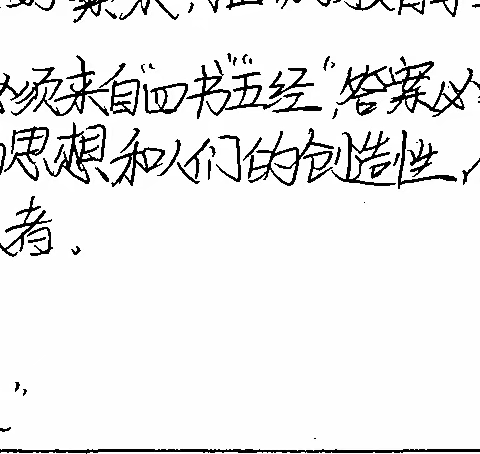 必须来自“四书”“五经”,答案必
思想和人们的创造性,
者。
”